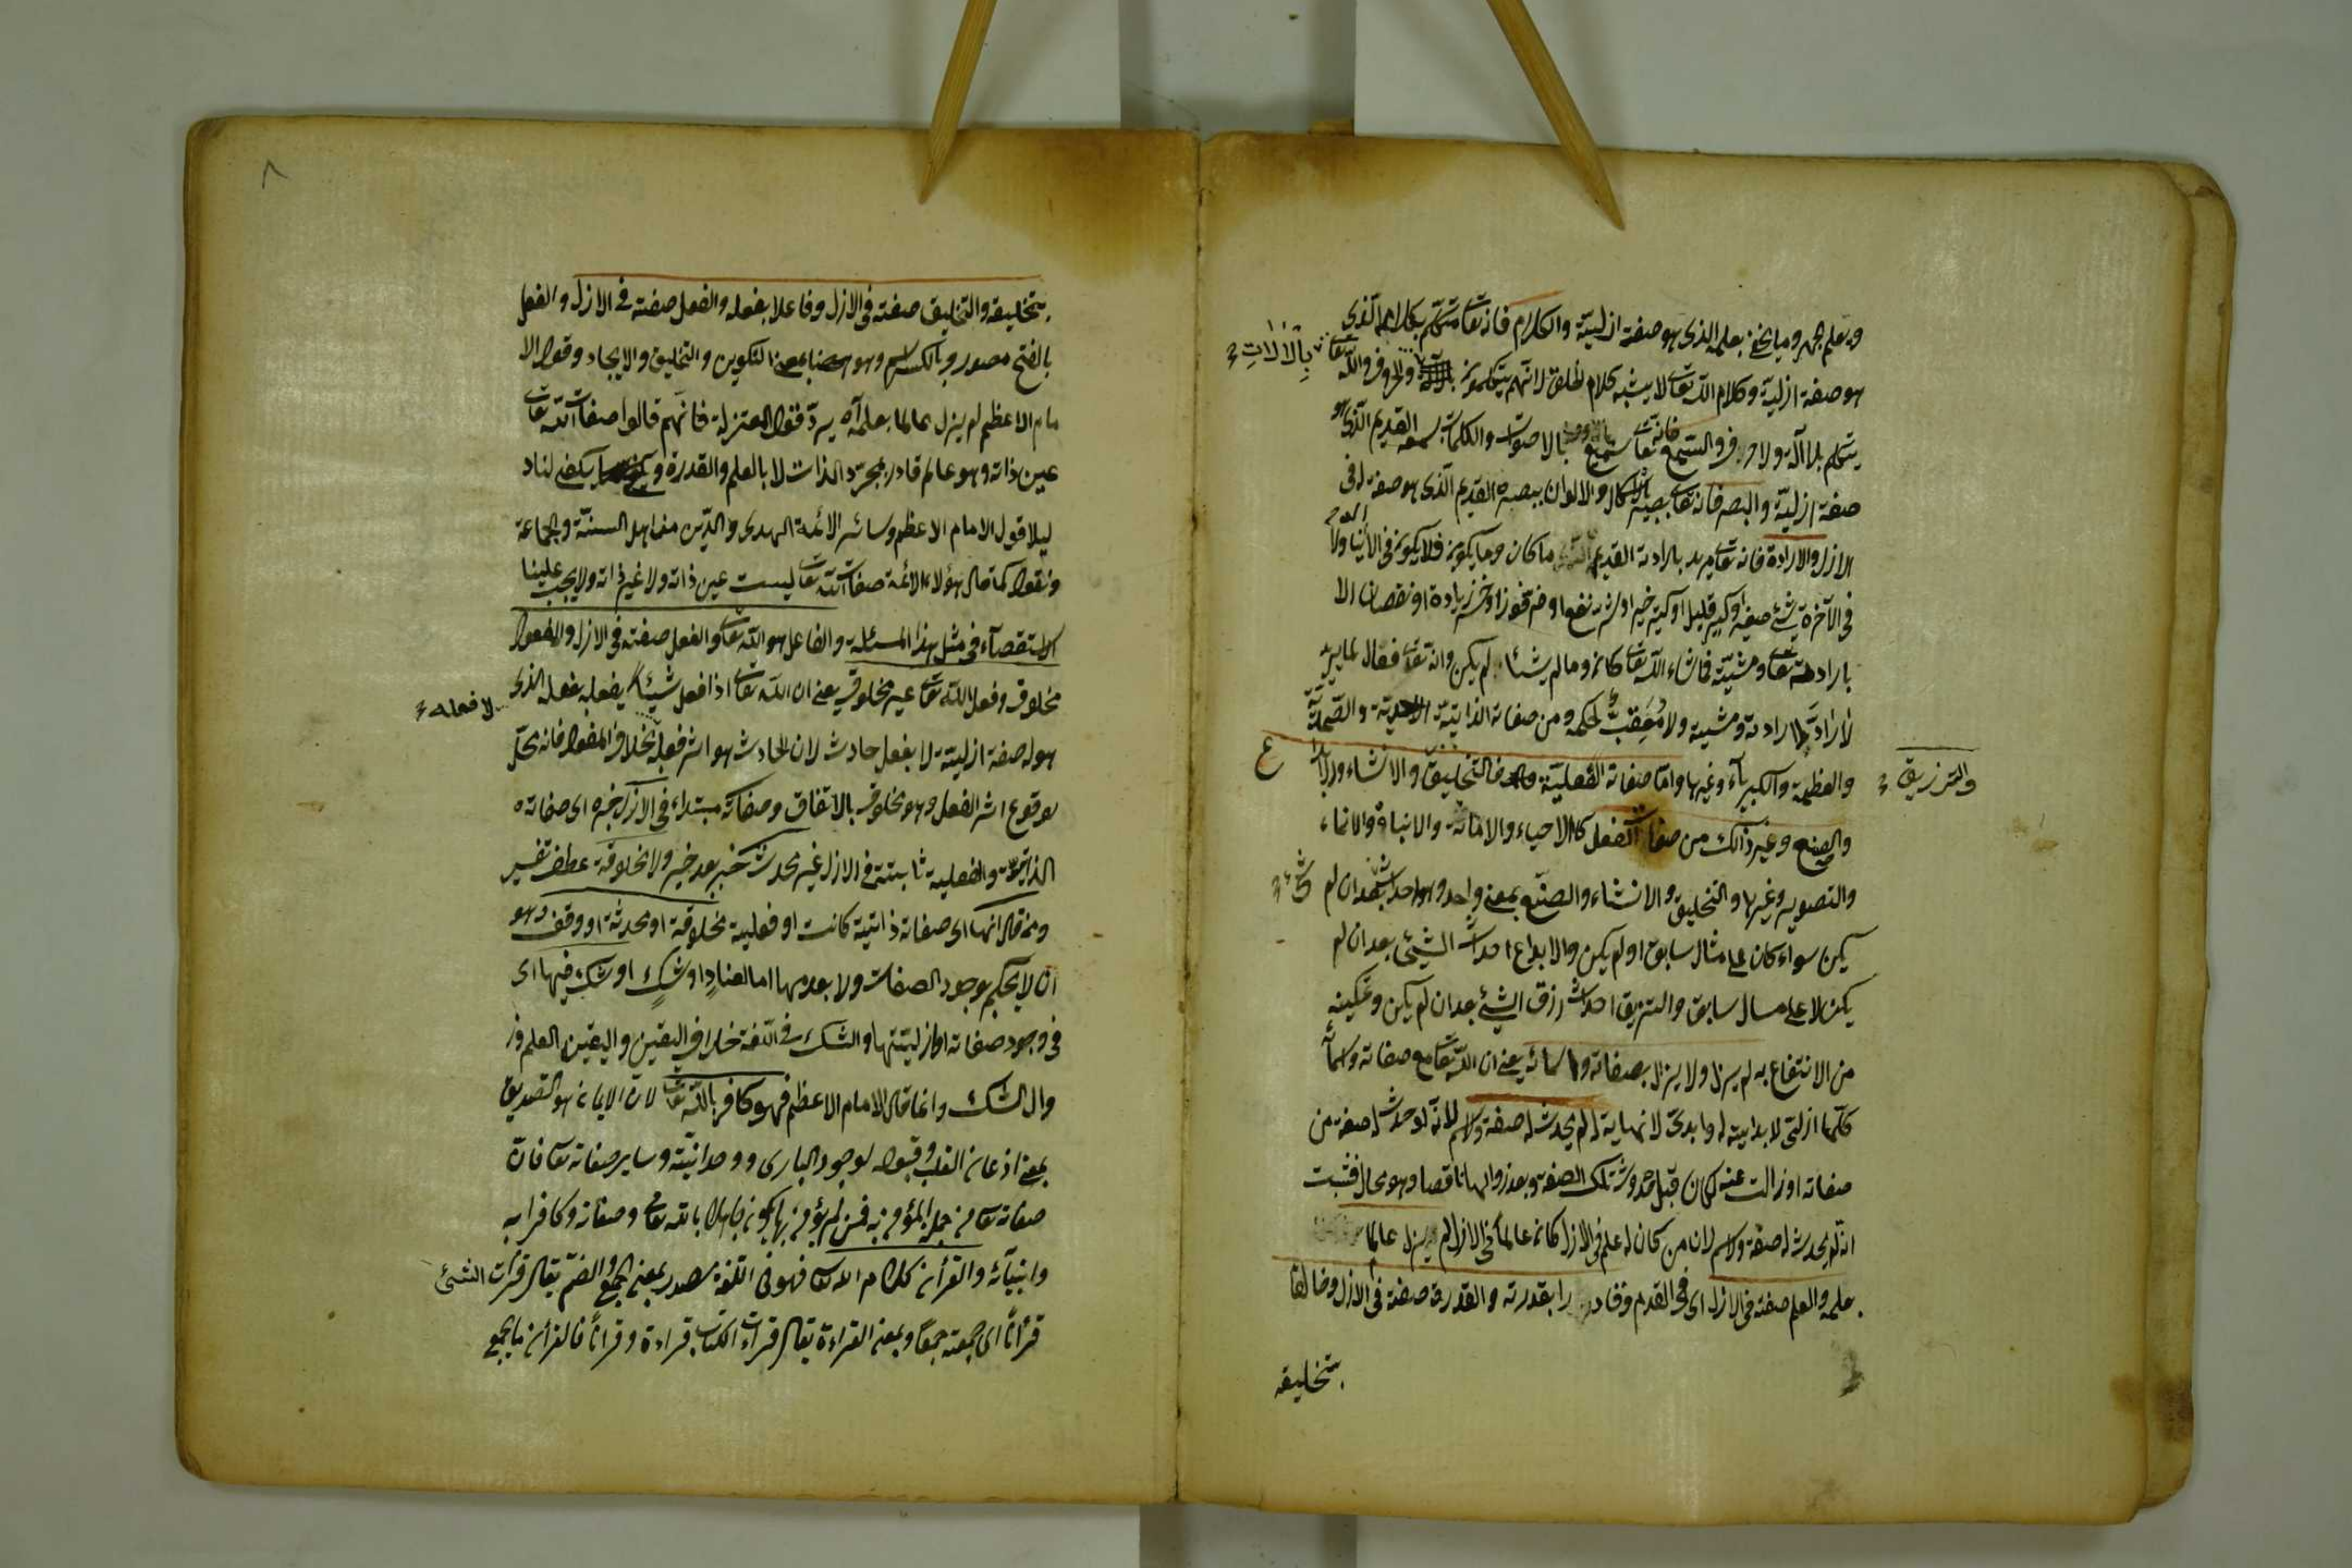 ويعلم الجهر وما يخفى بعلمه الذى هو صفة ازلية والكلام فانه تعا متكلم بكلامه الذى
هو صفة ازلية وكلام الله تعا لا يشبه كلام الخلق لانهم يتكلمون والحروف والله تعا
بالالات
يتكلم بلا آلة ولا حروف والسمع فانه تعا سميع بالاصوات والكلمات بسمعه القديم الذى هو
صفة ازلية والبصر فانه تعا بصير بالاشكال والالوان ببصره القديم الذى هو صفة له فى
الازل والارادة فانه تعا مريد بارادته القديمة ما كان وما يكون فلا يكون فى الدنيا ولا
فى الآخرة شئ صغير او كبير قليل او كثير خير او شر نفع او ضر فوز او خسر زيادة او نقصان الا
بارادته تعا ومشيته فما شاء الله تعا كان وما لم يشأ لم يكن وانه تعا فعال لما يريد
لا راد لارادته ومشيته ولا معقب لحكمه ومن صفاته الذاتية الاحدية والصمدية
والعظمة والكبرياء وغيرها واما صفاته الفعلية فالتخليق والانشاء والابداع
والترزيق
والصنع وغير ذالك من صفات الفعل كالاحياء والاماتة والانبات والانماء
والتصوير وغيرها والتخليق والانشاء والصنع بمعنى واحد وهو احداث الشئ بعد ان لم
يكن سواء كان على مثال سابق او لم يكن والابداع احداث الشيئ بعد ان لم
يكن لا على مثال سابق والترزيق احداث رزق الشئ بعد ان لم يكن وتمكينه
من الانتفاع به لم يزل ولا يزال بصفاته واسمائه يعنى ان الله تعا مع صفاته واسمائه
كلها ازلى لا بداية له وابدى لا نهاية له لم يحدث له صفة ولا اسم لانه لو حدث له صفة من
صفاته او زالت عنه لكان قبل حدوث تلك الصفة وبعد زوالها ناقصا وهو محال فثبت
انه لم يحدث له صفة ولا اسم لان من كان له علم فى الازل كان عالما فى الازل لم يزل عالما
بعلمه والعلم صفة فى الازل اى فى القدم وقادرا بقدرته والقدرة صفة فى الازل وخالقا
بتخليقه
٨
بتخليقه والتخليق صفة فى الازل وفاعلا بفعله والفعل صفة فى الازل والفعل
بالفتح مصدر وبالكسر اسم وهو هنا بمعنى التكوين والتخليق والايجاد وقول الا
مام الاعظم لم يزل عالما بعلمه آه يرد قول المعتزلة فانهم قالوا صفات الله تعا
عين ذاته وهو عالم قادر بمجرد الذات لا بالعلم والقدرة ويكفى لنا د
ليلا قول الامام الاعظم وسائر الائمة الهدى والدين من اهل السنة والجماعة
ونقول كما قال هؤلاء الائمة صفات الله تعا ليست عين ذاته ولا غير ذاته ولا يجب علينا
الاستقصآء فى مثل هذا المسئلة والفاعل هو الله تعا والفعل صفته فى الازل والمفعول
مخلوق وفعل الله تعا غير مخلوق يعنى ان الله تعا اذا فعل شيئا يفعله بفعله الذى
لا فعله
هو له صفة ازلية لا بفعل حادث لان الحادث هو اثر فعله بخلاف المفعول فانه محل
لوقوع اثر الفعل وهو مخلوق بالاتفاق وصفاته مبتداء فى الازل خبره اى صفاته
الذاتية والفعلية ثابتة فى الازل غير محدثة خبر بعد خبر ولا مخلوقة عطف تفسير
ومن قال انها اى صفاته ذاتية كانت او فعلية مخلوقة او محدثة او وقف وهو
ان لا يحكم بوجود الصفات ولا بعدمها اما لعناد او شك او شك فيها اى
فى وجود صفاته او ازليتها والشك فى اللغة خلاف اليقين واليقين العلم وز
وال الشك وانما قال الامام الاعظم فهو كافر بالله تعا لان الايمان هو التصديق
بمعنى اذعان القلب وقبوله لوجود البارى ووحدانيته وساير صفاته تعا فان
صفاته تعا من جملة المؤمن به فمن لم يؤمن بها يكون جاهلا بالله تعا وصفاته وكافرا به
وانبيائه والقرأن كلام الله تعا فهو فى اللغة مصدر بمعنى الجمع والضم يقال قرأت الشئ
قرأنا اى جمعته جمعا وبمعنى القراءة يقال قرأت الكتاب قراءة وقرانا فالقرأن ما يجمع